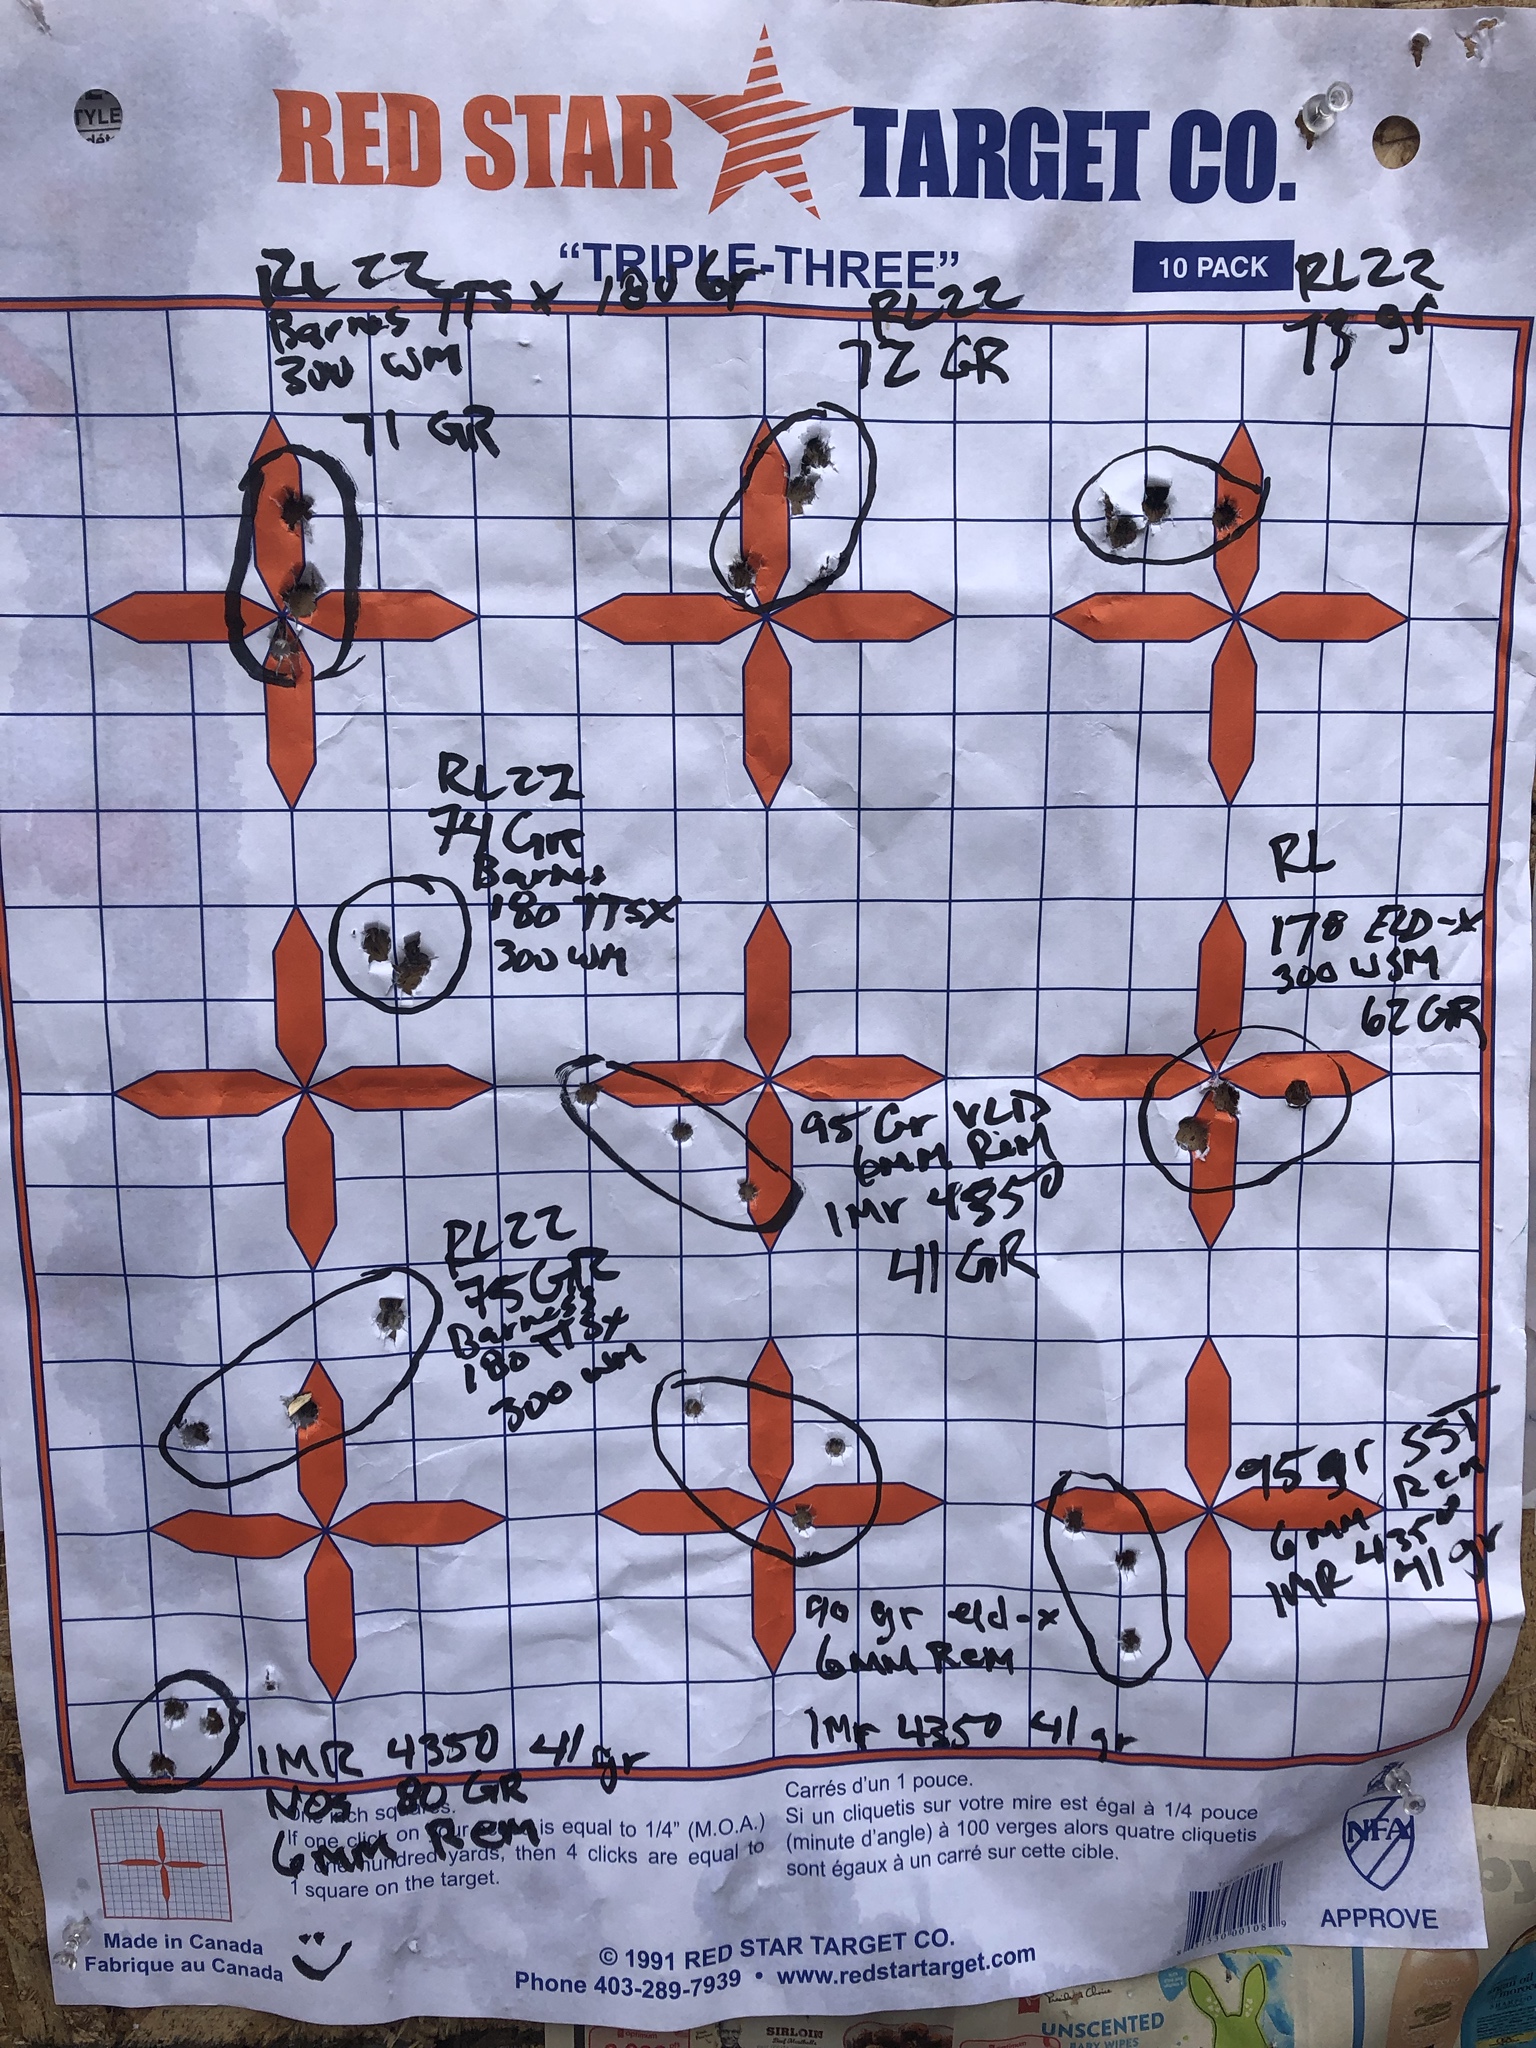 TYLE
RED STAR TARGET CO.
"TRIPLE-THREE"
10 PACK
RL 22
Barnes TTSX 180 Gr
300 WM
71 GR
RL22
72 GR
RL22
73 gr
RL22
74 Gr
Barnes
180 TTSX
300 WM
RL
178 ELD-X
300 WSM
62 GR
95 Gr VLD
6MM Rem
IMR 4350
41 GR
RL22
75 GR
Barnes
180 TTSX
300 WM
95 gr SST
6MM Rem
IMR 4350
41 gr
90 gr eld-x
6MM Rem
IMr 4350 41 gr
IMR 4350 41 gr
NOS 80 GR
6MM Rem
One inch squares.
If one click on your is equal to 1/4" (M.O.A.)
one hundred yards, then 4 clicks are equal to
1 square on the target.
Carrés d'un 1 pouce.
Si un cliquetis sur votre mire est égal à 1/4 pouce
(minute d'angle) à 100 verges alors quatre cliquetis
sont égaux à un carré sur cette cible.
NFA
APPROVE
Made in Canada
Fabrique au Canada
© 1991 RED STAR TARGET CO.
Phone 403-289-7939 • www.redstartarget.com
SIRLOIN
UNSCENTED
BABY WIPES